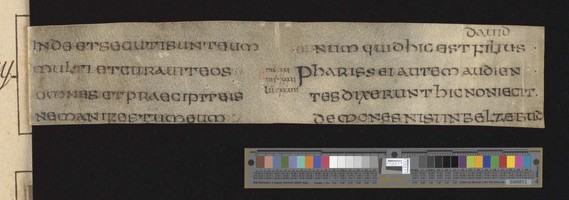 inde et secuti sunt eum
multi et curauit eos
omnes et praecipit eis
ne manifestum eum
dauid
num quid hic est filius
pharisei autem audien
tes dixerunt hic non iecit.
demones nisi in belzebub